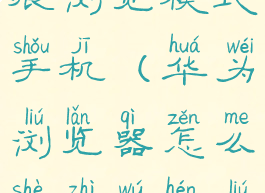 浏览模式
shǒu jī huá wéi
手机（华为
liú lǎn qì zěn me
浏览器怎么
shè zhì wú hén liú